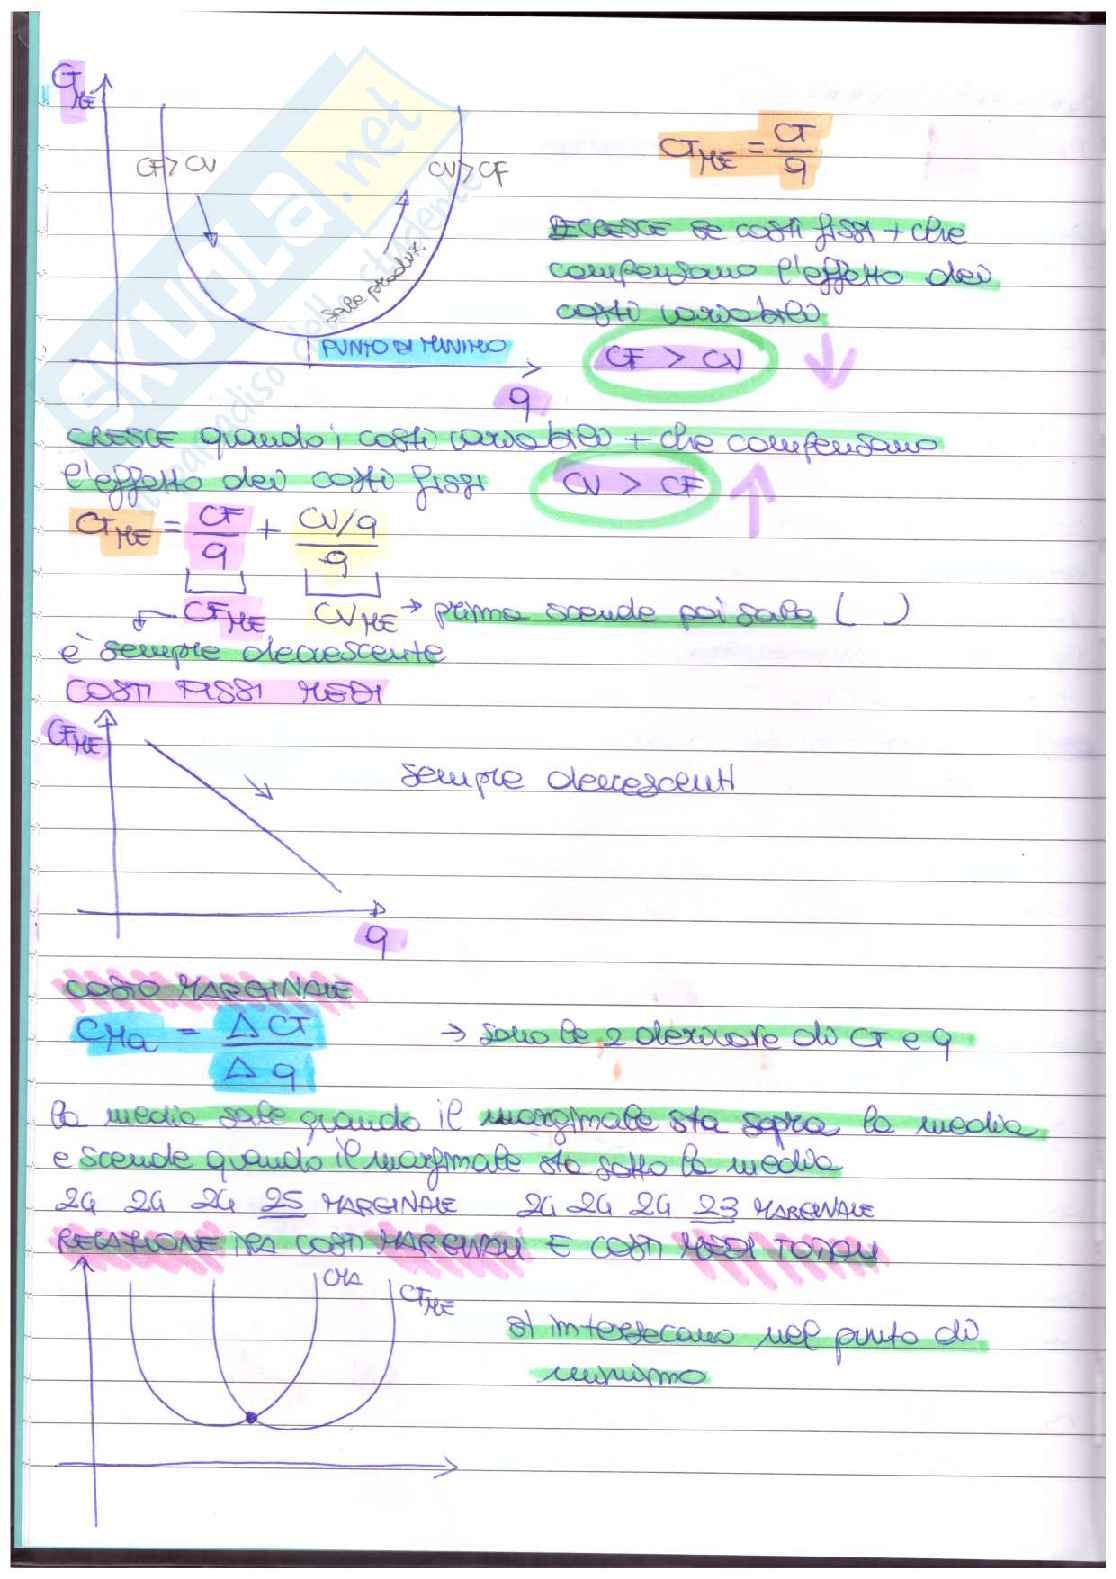 CT ME
CF > CV
CV > CF
sale produz.
PUNTO DI MINIMO
q
CT ME = CT / q
DECRESCE se costi fissi + che
compensano l'effetto dei
costi variabili
CF > CV
CRESCE quando i costi variabili + che compensano
l'effetto dei costi fissi
CV > CF
CT ME = CF/q + CV/q / q
CF ME CV ME → prima scende poi sale ( )
è sempre decrescente
COSTI FISSI MEDI
CF ME
sempre decrescenti
q
COSTO MARGINALE
CMa = Δ CT / Δ q → sono le 2 derivate di CT e q
la media sale quando il marginale sta sopra la media
e scende quando il marginale sta sotto la media
24 24 24 25 MARGINALE 24 24 24 23 MARGINALE
RELAZIONE TRA COSTI MARGINALI E COSTI MEDI TOTALI
CMA
CT ME
si intersecano nel punto di
minimo
SKUOLA.net
il paradiso dello studente